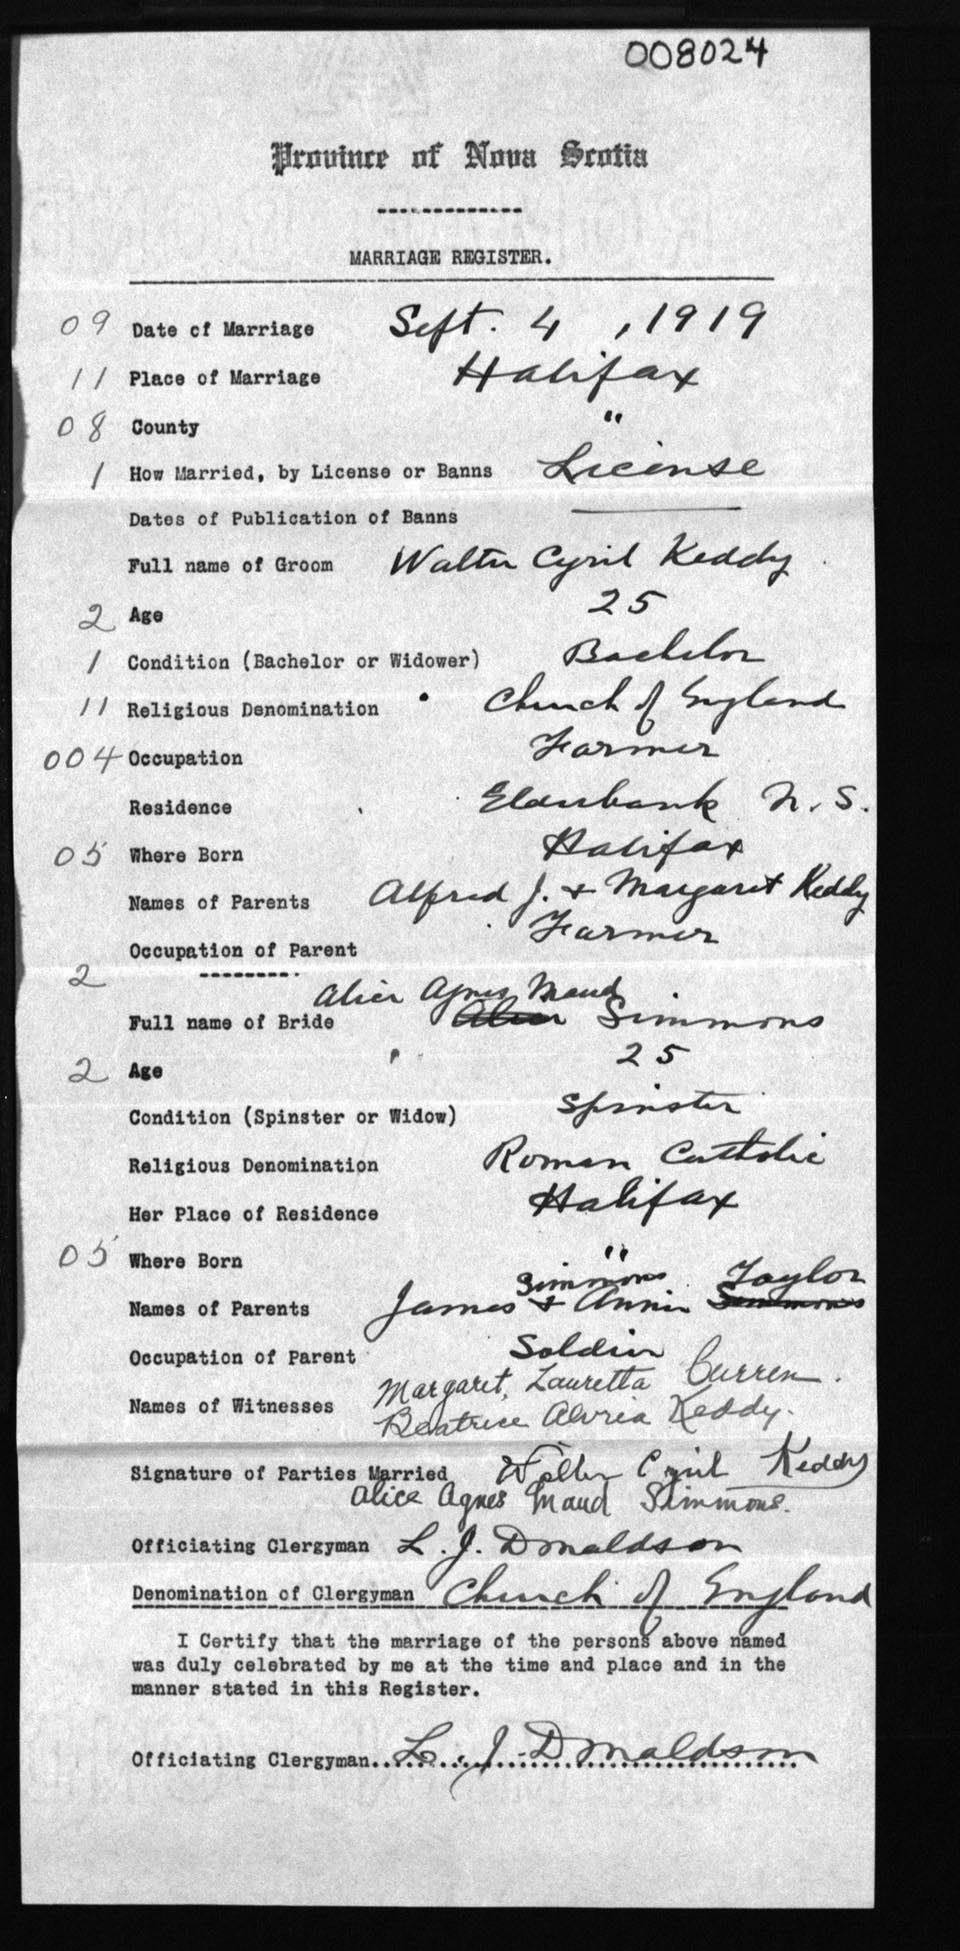 008024
Province of Nova Scotia
MARRIAGE REGISTER.
09 Date of Marriage Sept. 4, 1919
11 Place of Marriage Halifax
08 County "
1 How Married, by License or Banns License
Dates of Publication of Banns
Full name of Groom Walter Cyril Keddy
2 Age 25
1 Condition (Bachelor or Widower) Bachelor
11 Religious Denomination Church of England
004 Occupation Farmer
Residence Elderbank N.S.
05 Where Born Halifax
Names of Parents Alfred J. + Margaret Keddy
Occupation of Parent Farmer
2
Alice Agnes Maud
Full name of Bride Alice Simmons
2 Age 25
Condition (Spinster or Widow) Spinster
Religious Denomination Roman Catholic
Her Place of Residence Halifax
05 Where Born "
Simmons Taylor
Names of Parents James + Annie Simmons
Occupation of Parent Soldier
Margaret, Lauretta Curren.
Names of Witnesses
Beatrice Keddy.
Signature of Parties Married Walter Cyril Keddy
Alice Agnes Maud Simmons.
Officiating Clergyman L. J. Donaldson
Denomination of Clergyman Church of England
I Certify that the marriage of the persons above named
was duly celebrated by me at the time and place and in the
manner stated in this Register.
Officiating Clergyman L. J. Donaldson